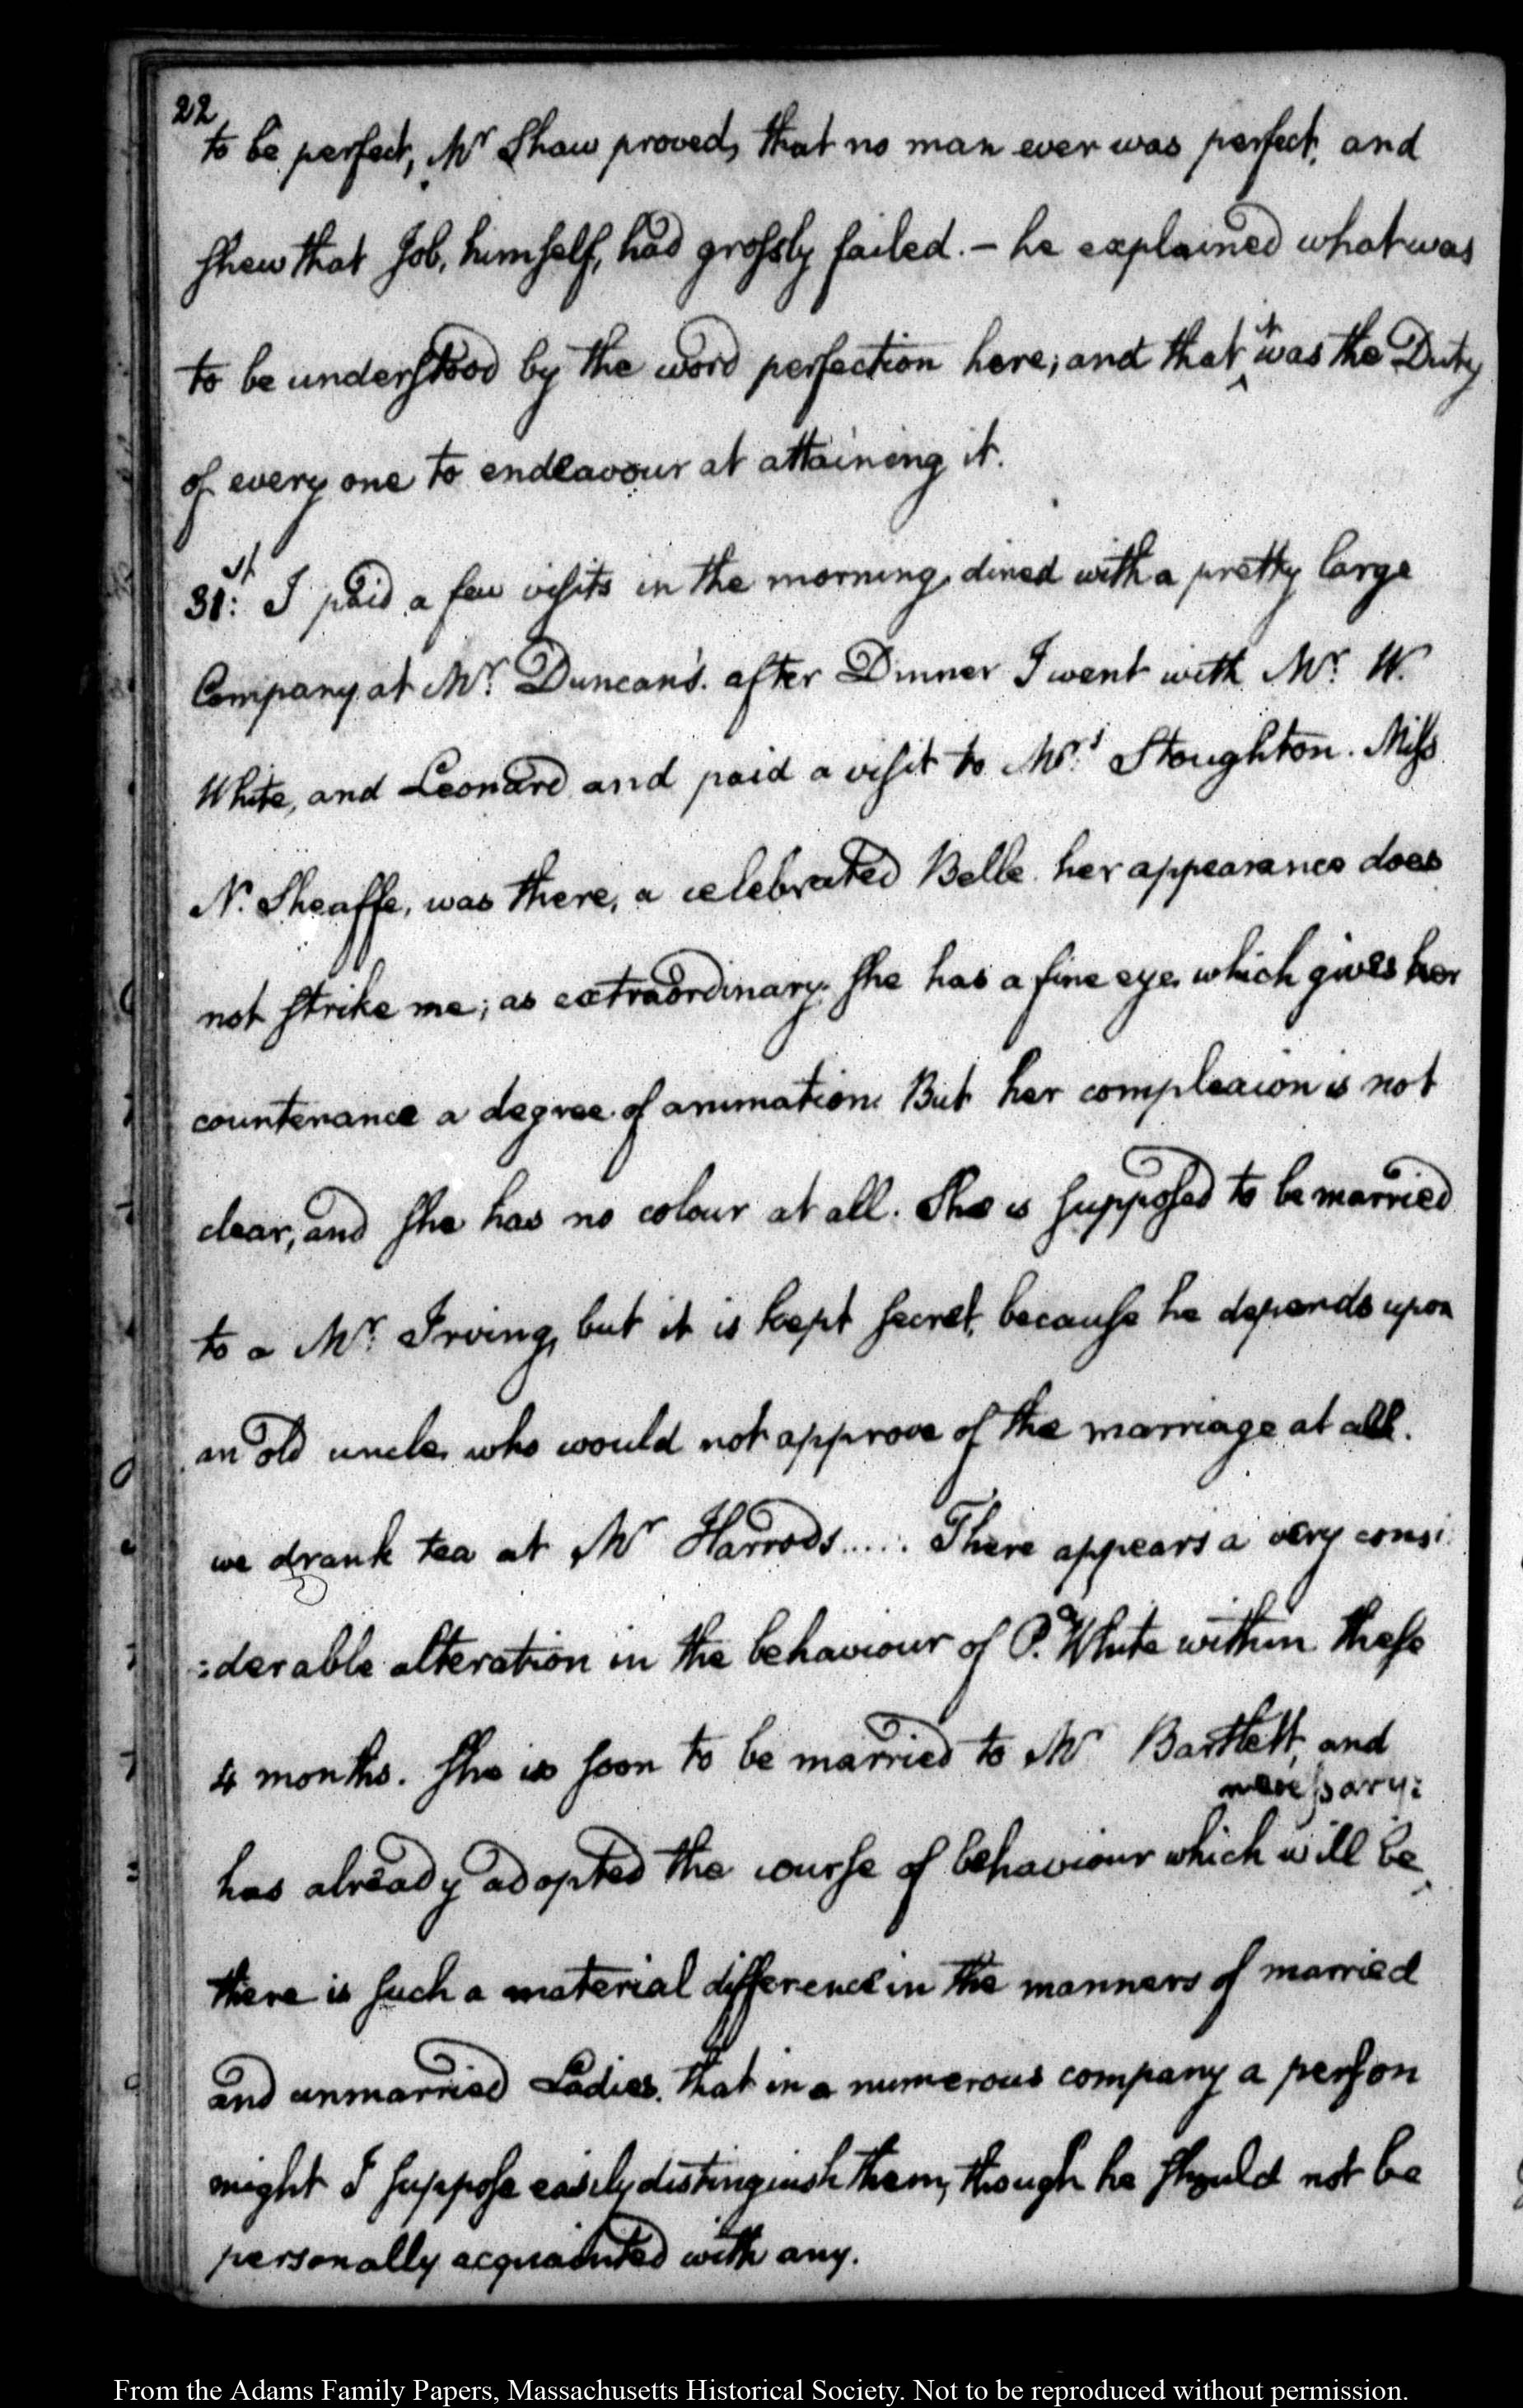 22
to be perfect, Mr Shaw proved, that no man ever was perfect, and
shew that Job, himself, had grossly failed. – he explained what was
to be understood by the word perfection here; and that it was the Duty
of every one to endeavour at attaining it.
31st: I paid a few visits in the morning, dined with a pretty large
Company at Mr. Duncan's. after Dinner I went with Mr. W.
White, and Leonard and paid a visit to Mrs. Stoughton. Miss
N. Sheaffe, was there, a celebrated Belle. her appearance does
not strike me; as extraordinary. She has a fine eye, which gives her
countenance a degree of animation. But her complexion is not
clear, and she has no colour at all. She is supposed to be married
to a Mr. Irving, but it is kept secret, because he depends upon
an old uncle, who would not approve of the marriage at all.
we drank tea at Mr Harrods..... There appears a very consi:
:derable alteration in the behaviour of P. White within these
4 months. She is soon to be married to Mr Bartlett, and
has already adopted the course of behaviour which will be necessary:
there is such a material difference in the manners of married
and unmarried Ladies, that in a numerous company a person
might I suppose easily distinguish them, though he should not be
personally acquainted with any.
From the Adams Family Papers, Massachusetts Historical Society. Not to be reproduced without permission.